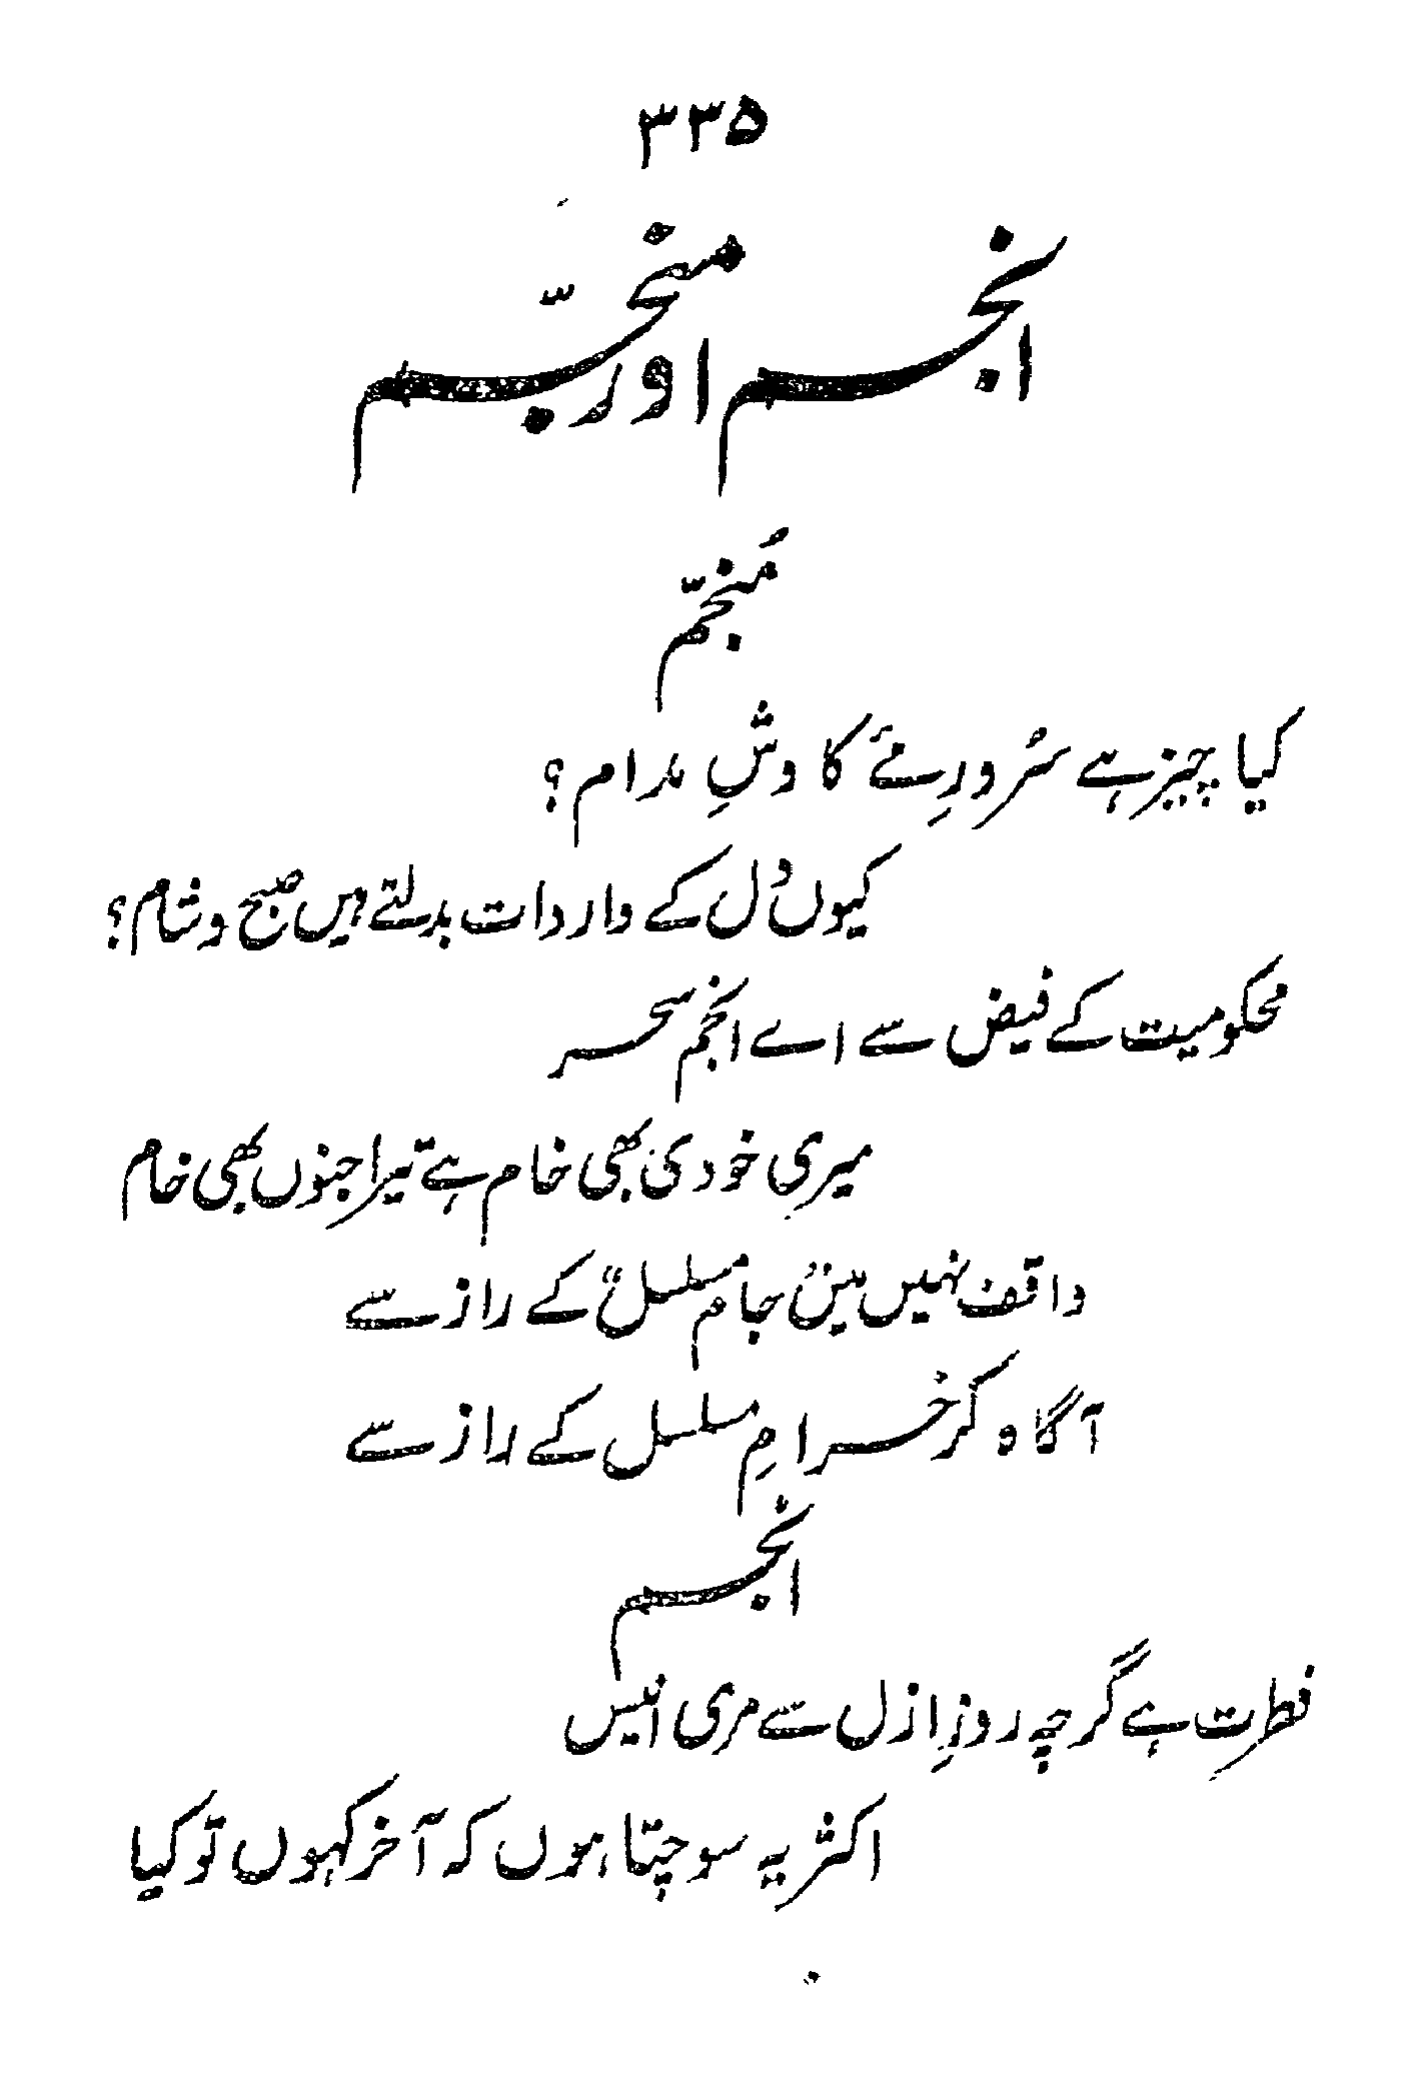 ۳۳۵
انجم اور منجّم
مُنجّم
کیا چیز ہے سُرورِ مئے کاوشِ مدام؟
کیوں دل کے واردات بدلتے ہیں صبح و شام؟
محکومیت کے فیض سے اے انجم سحر
میری خودی بھی خام ہے تیرا جنوں بھی خام
واقف نہیں میں جام مسلسل کے راز سے
آگاہ کر خرامِ مسلسل کے راز سے
انجم
فطرت ہے گرچہ روزِ ازل سے مری انیس
اکثر یہ سوچتا ہوں کہ آخر کہوں تو کیا